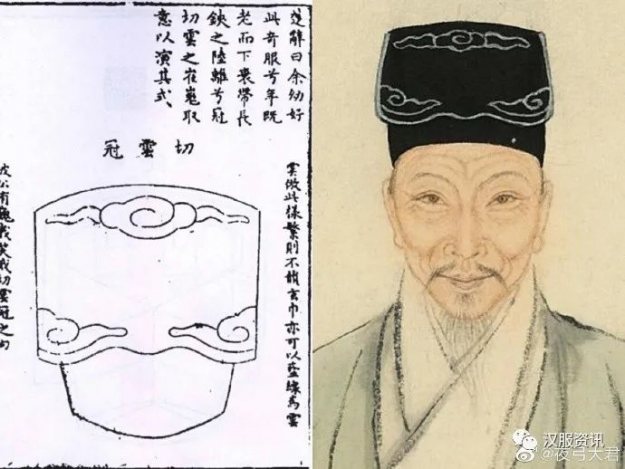 楚辭曰余幼好
此奇服兮年既
老而不衰帶長
鋏之陸離兮冠
切雲之崔嵬取
意以演其式
切雲冠
雲倣此樣繁則不玄巾亦可以藍緣為雲
公有切雲冠之句
汉服资讯
@夜弓大君